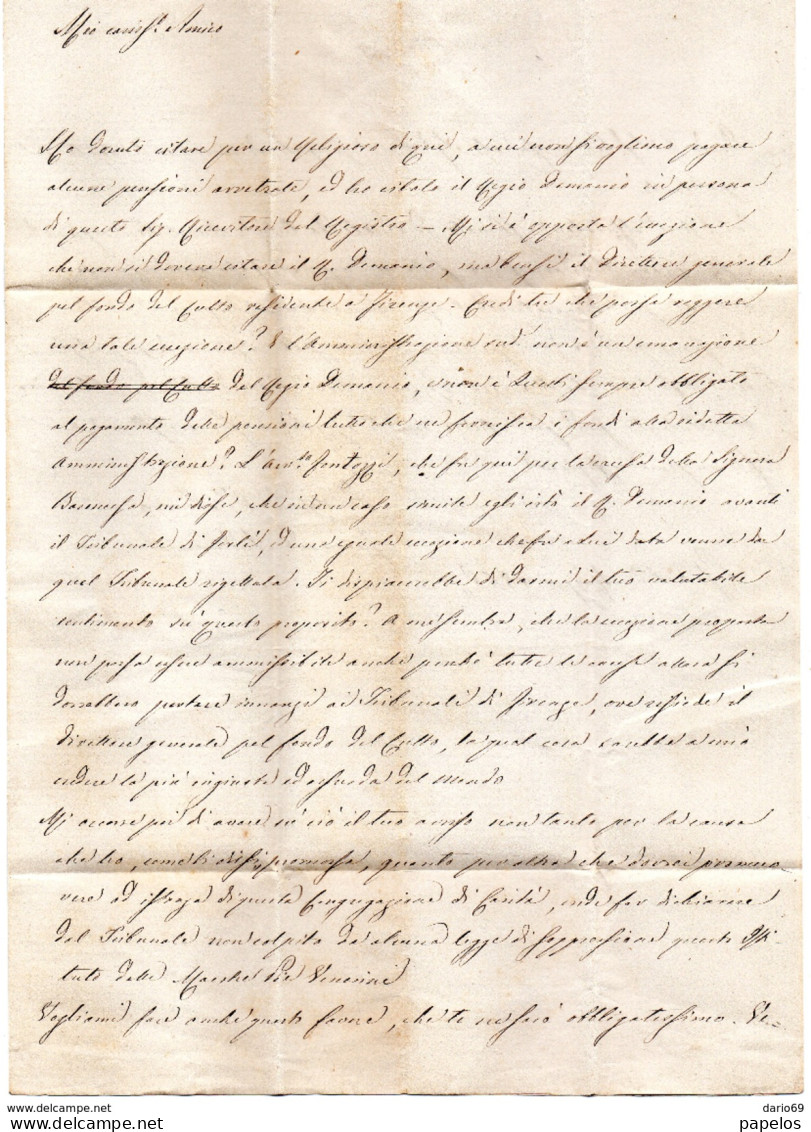 Mio cariss.º Amico
Ho dovuto citare per un Religioso di qui, a cui non si vogliono pagare
alcune pensioni arretrate, ed ho citato il Regio Demanio in persona
di questo Sig. Ricevitore del Registro – Mi si è opposta l'eccezione
che non si doveva citare il R. Demanio, ma bensì il Direttore generale
pel fondo del Culto residente a Firenze. Credi tu che possa reggere
una tale eccezione? E l'Amministrazione sud.ª non è un'emanazione
del fondo pel Culto del Regio Demanio, e non è quindi sempre obbligato
al pagamento delle pensioni tutto che ne fornisca i fondi alla ridetta
Amministrazione? L'Avv.to, che fu qui per la causa della Signora
mi disse, che in un caso simile egli citò il R. Demanio avanti
il Tribunale di Forlì, ed una eguale eccezione che fu data venne da
quel Tribunale rigettata. Ti dispiacerebbe di darmi il tuo valutabile
sentimento su questo proposito? A me sembra, che la eccezione proposta
non possa essere ammissibile anche perché tutte le cause allora si
dovrebbero portare innanzi ai Tribunali di Firenze, ove risiede il
direttore generale pel fondo del Culto, la qual cosa sarebbe a mio
credere la più ingiusta ed assurda del mondo
Mi occorre poi di avere su ciò il tuo avviso non tanto per la causa
che ho, come ti dissi, promossa, quanto per altra che dovrei promuo-
vere ad istanza di questa Congregazione di Carità, onde far dichiarare
dal Tribunale non colpito da alcuna legge di soppressione questo Isti-
tuto delle Maestre Pie Venerini
Vogliami fare anche questo favore, che te ne sarò obbligatissimo. Ve-
dario69
papelos